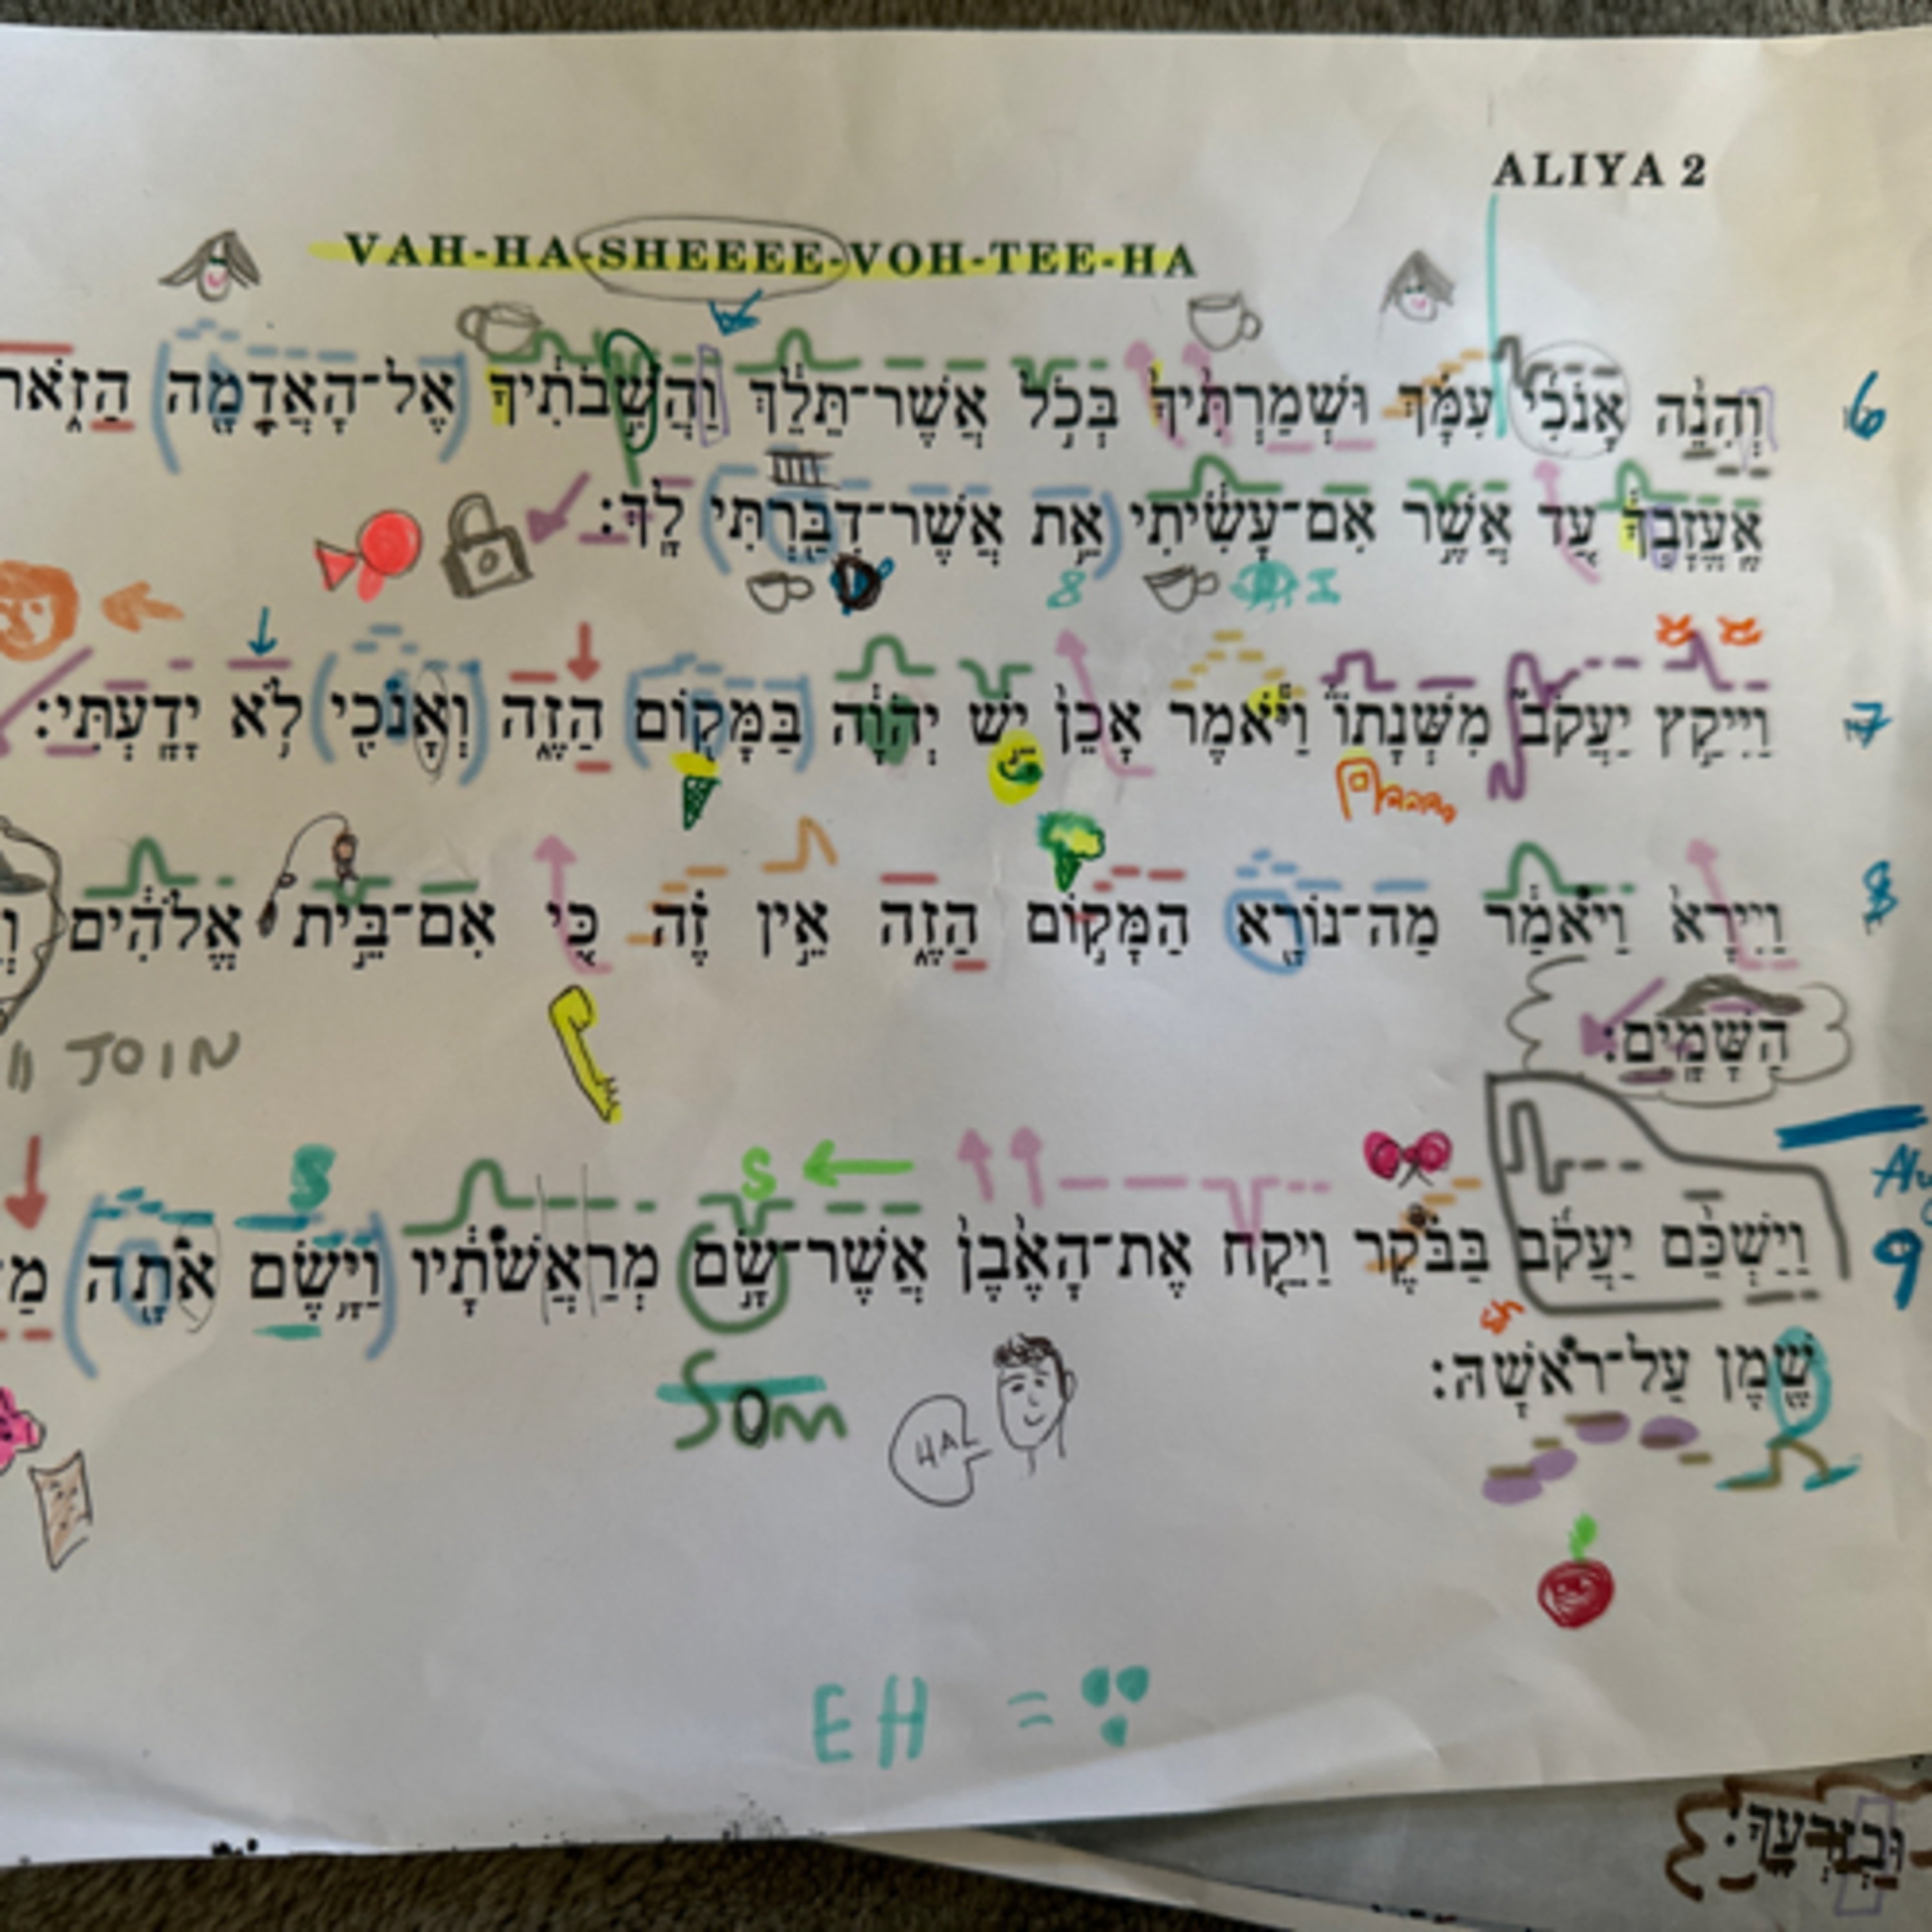 ALIYA 2
VAH-HA-SHEEEE-VOH-TEE-HA
6 וְהִנֵּ֨ה אָנֹכִ֜י עִמָּ֗ךְ וּשְׁמַרְתִּ֙יךָ֙ בְּכֹ֣ל אֲשֶׁר־תֵּלֵ֔ךְ וַהֲשִׁ֣בֹתִ֔יךָ אֶל־הָאֲדָמָ֖ה
אֶֽעֱזָבְךָ֔ עַ֚ד אֲשֶׁ֣ר אִם־עָשִׂ֔יתִי אֵ֥ת אֲשֶׁר־דִּבַּ֖רְתִּי לָֽךְ׃
7 וַיִּיקַ֣ץ יַעֲקֹב֮ מִשְּׁנָתוֹ֒ וַיֹּ֕אמֶר אָכֵן֙ יֵ֣שׁ יְהֹוָ֔ה בַּמָּק֖וֹם הַזֶּ֑ה וְאָנֹכִ֖י לֹ֥א יָדָֽעְתִּי׃
8 וַיִּירָא֙ וַיֹּאמַ֔ר מַה־נּוֹרָ֖א הַמָּק֣וֹם הַזֶּ֑ה אֵ֣ין זֶ֗ה כִּ֚י אִם־בֵּ֣ית אֱלֹהִ֔ים
הַשָּׁמָֽיִם׃
JOIN
S S
9 וַיַּשְׁכֵּ֨ם יַעֲקֹ֜ב בַּבֹּ֗קֶר וַיִּקַּ֤ח אֶת־הָאֶ֙בֶן֙ אֲשֶׁר־שָׂ֣ם מְרַֽאֲשֹׁתָ֔יו וַיָּ֥שֶׂם אֹתָ֖הּ
שֶׁ֖מֶן עַל־רֹאשָֽׁהּ׃
SOM
HAL
EH =
וּבְזַרְעֶֽךָ׃